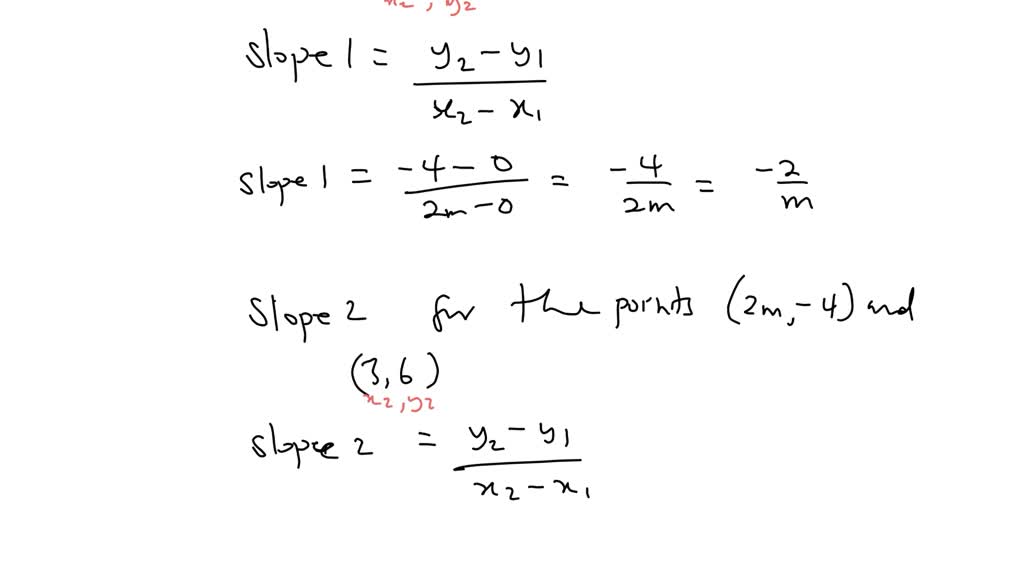 x2, y2
slope 1 = y2 - y1 / x2 - x1
slope 1 = -4 - 0 / 2m - 0 = -4 / 2m = -2 / m
slope 2 for the points (2m, -4) and
(3, 6)
x2, y2
slope 2 = y2 - y1 / x2 - x1